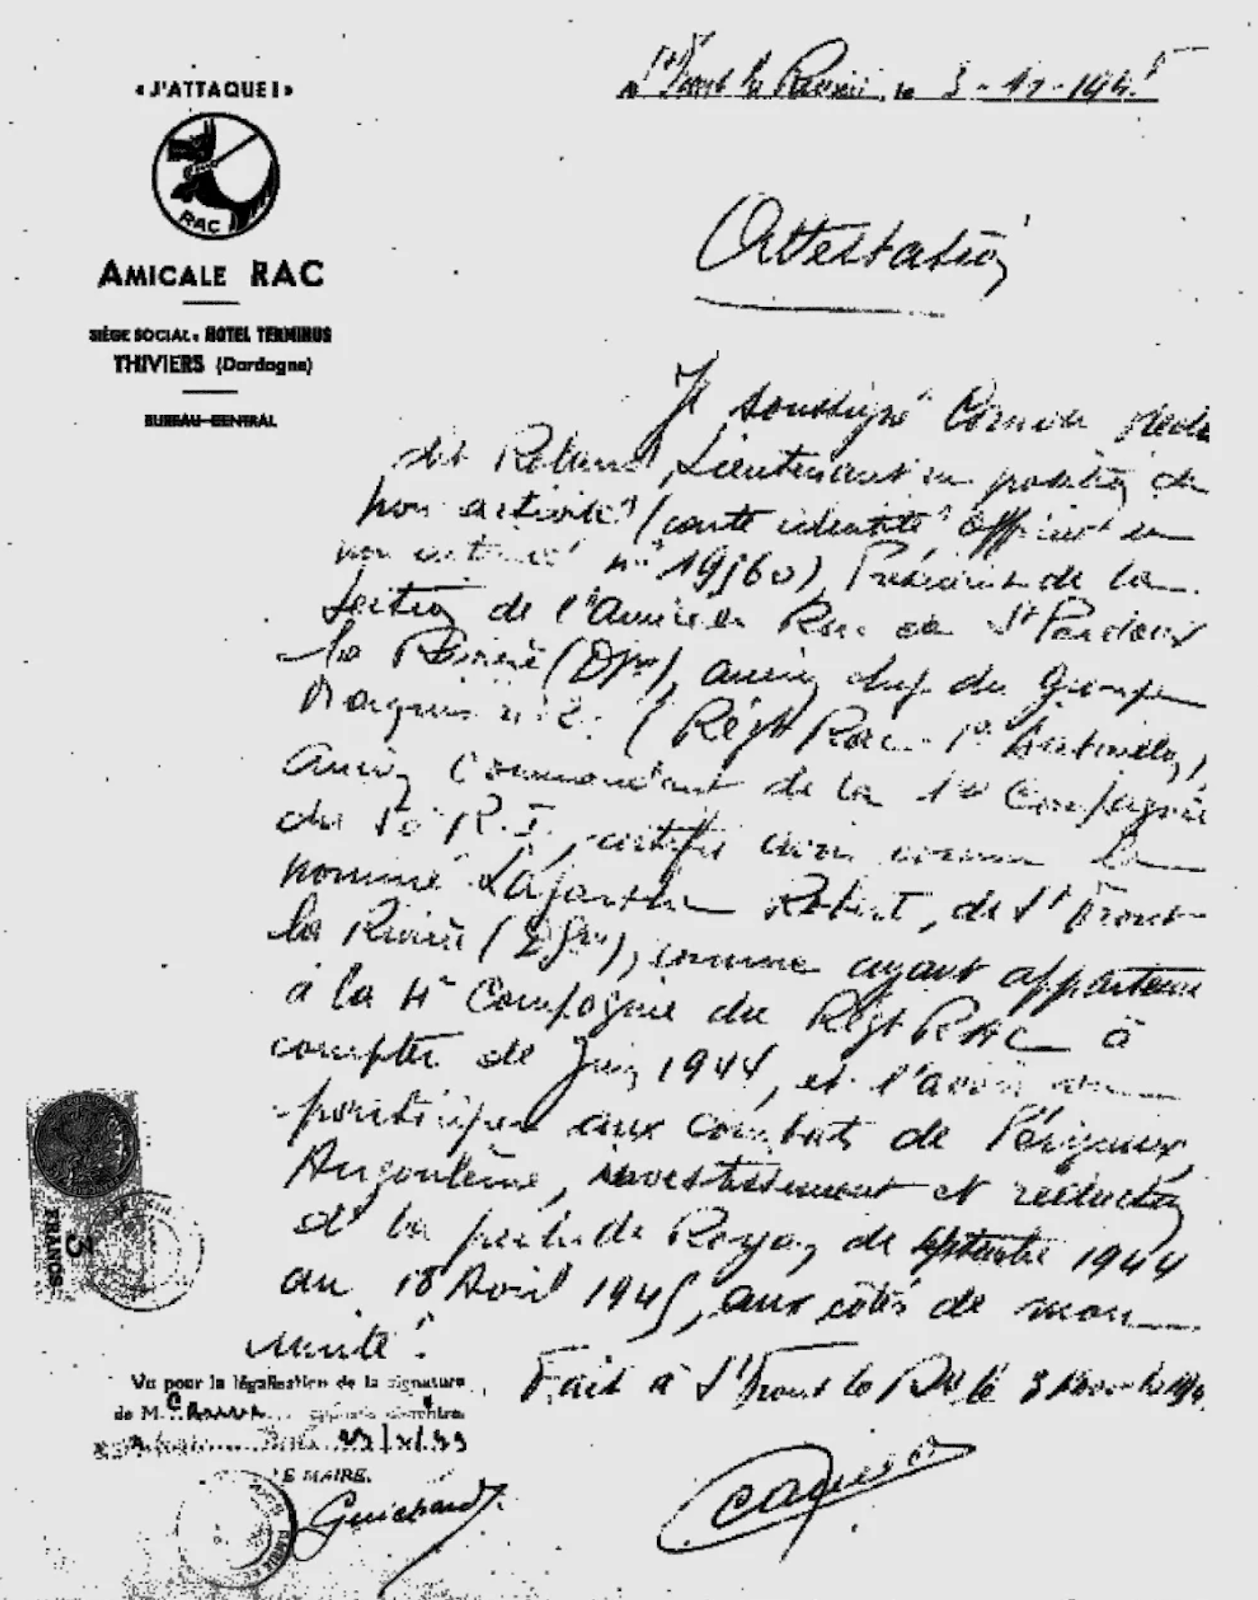 « J'ATTAQUE ! »
RAC
AMICALE RAC
SIÈGE SOCIAL : HOTEL TERMINUS
THIVIERS (Dordogne)
BUREAU CENTRAL
St Front la Rivière, le 3-11-194
Attestation
Je soussigné
dit Roland, Lieutenant en position de
non activité (carte identité officier en
non activité n° 19560), Président de la
Section de l'Amicale Rac de St Pardoux
la Rivière (Dgne), ancien chef du Groupe
n° 2 (Régt Rac
ancien Commandant de la 1re Compagnie
du 50e R.I., certifie avoir connu le
nommé Lajarthe Robert, de St Front
la Rivière (Dgne), comme ayant appartenu
à la 4e Compagnie du Régt RAC à
compter de Juin 1944, et l'avoir vu
participer aux combats de Périgueux,
Angoulême, investissement et réduction
de la poche de Royan, de septembre 1944
au 18 Avril 1945, aux côtés de mon
unité.
Fait à St Front la Re le 3 Novembre
Vu pour la légalisation de la signature
de M.
LE MAIRE,
Guichard
3
FRANCS